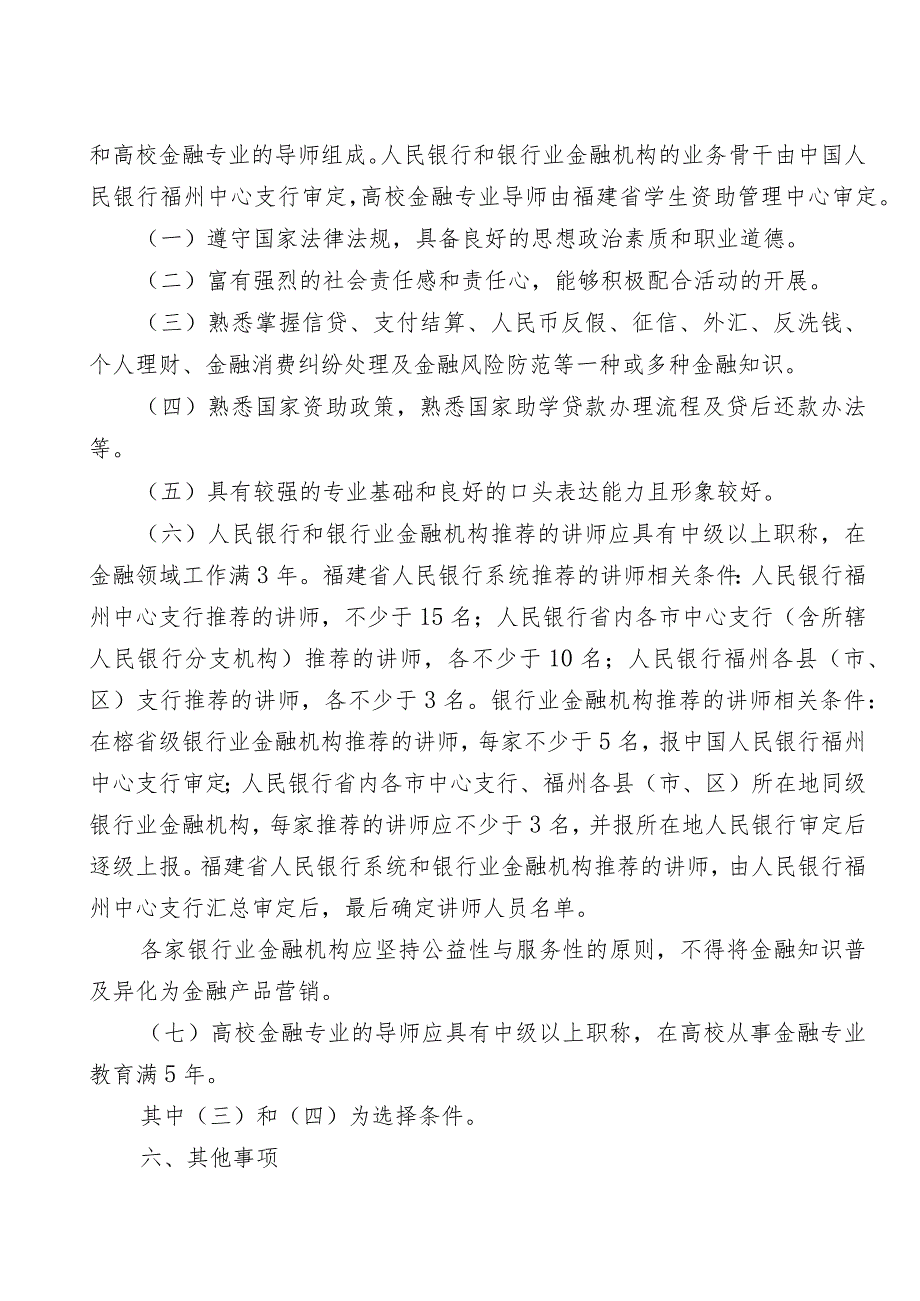 和高校金融专业的导师组成。人民银行和银行业金融机构的业务骨干由中国人
民银行福州中心支行审定，高校金融专业导师由福建省学生资助管理中心审定。
（一）遵守国家法律法规，具备良好的思想政治素质和职业道德。
（二）富有强烈的社会责任感和责任心，能够积极配合活动的开展。
（三）熟悉掌握信贷、支付结算、人民币反假、征信、外汇、反洗钱、
个人理财、金融消费纠纷处理及金融风险防范等一种或多种金融知识。
（四）熟悉国家资助政策，熟悉国家助学贷款办理流程及贷后还款办法
等。
（五）具有较强的专业基础和良好的口头表达能力且形象较好。
（六）人民银行和银行业金融机构推荐的讲师应具有中级以上职称，在
金融领域工作满 3 年。福建省人民银行系统推荐的讲师相关条件：人民银行福
州中心支行推荐的讲师，不少于 15 名；人民银行省内各市中心支行（含所辖
人民银行分支机构）推荐的讲师，各不少于 10 名；人民银行福州各县（市、
区）支行推荐的讲师，各不少于 3 名。银行业金融机构推荐的讲师相关条件：
在榕省级银行业金融机构推荐的讲师，每家不少于 5 名，报中国人民银行福州
中心支行审定；人民银行省内各市中心支行、福州各县（市、区）所在地同级
银行业金融机构，每家推荐的讲师应不少于 3 名，并报所在地人民银行审定后
逐级上报。福建省人民银行系统和银行业金融机构推荐的讲师，由人民银行福
州中心支行汇总审定后，最后确定讲师人员名单。
各家银行业金融机构应坚持公益性与服务性的原则，不得将金融知识普
及异化为金融产品营销。
（七）高校金融专业的导师应具有中级以上职称，在高校从事金融专业
教育满 5 年。
其中（三）和（四）为选择条件。
六、其他事项